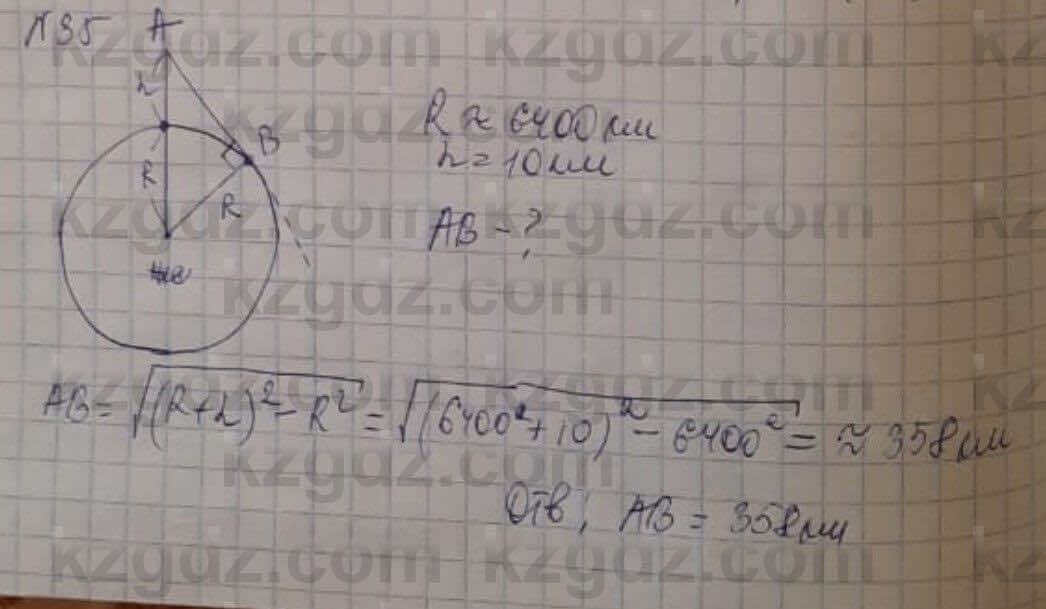 N35 A
h
R ≈ 6400 км
B
h = 10 км
R
R
AB - ?
AB = √((R+h)² - R²) = √((6400²+10)² - 6400²) = ≈ 358 км
Отв; AB = 358 км
kzgdz.com